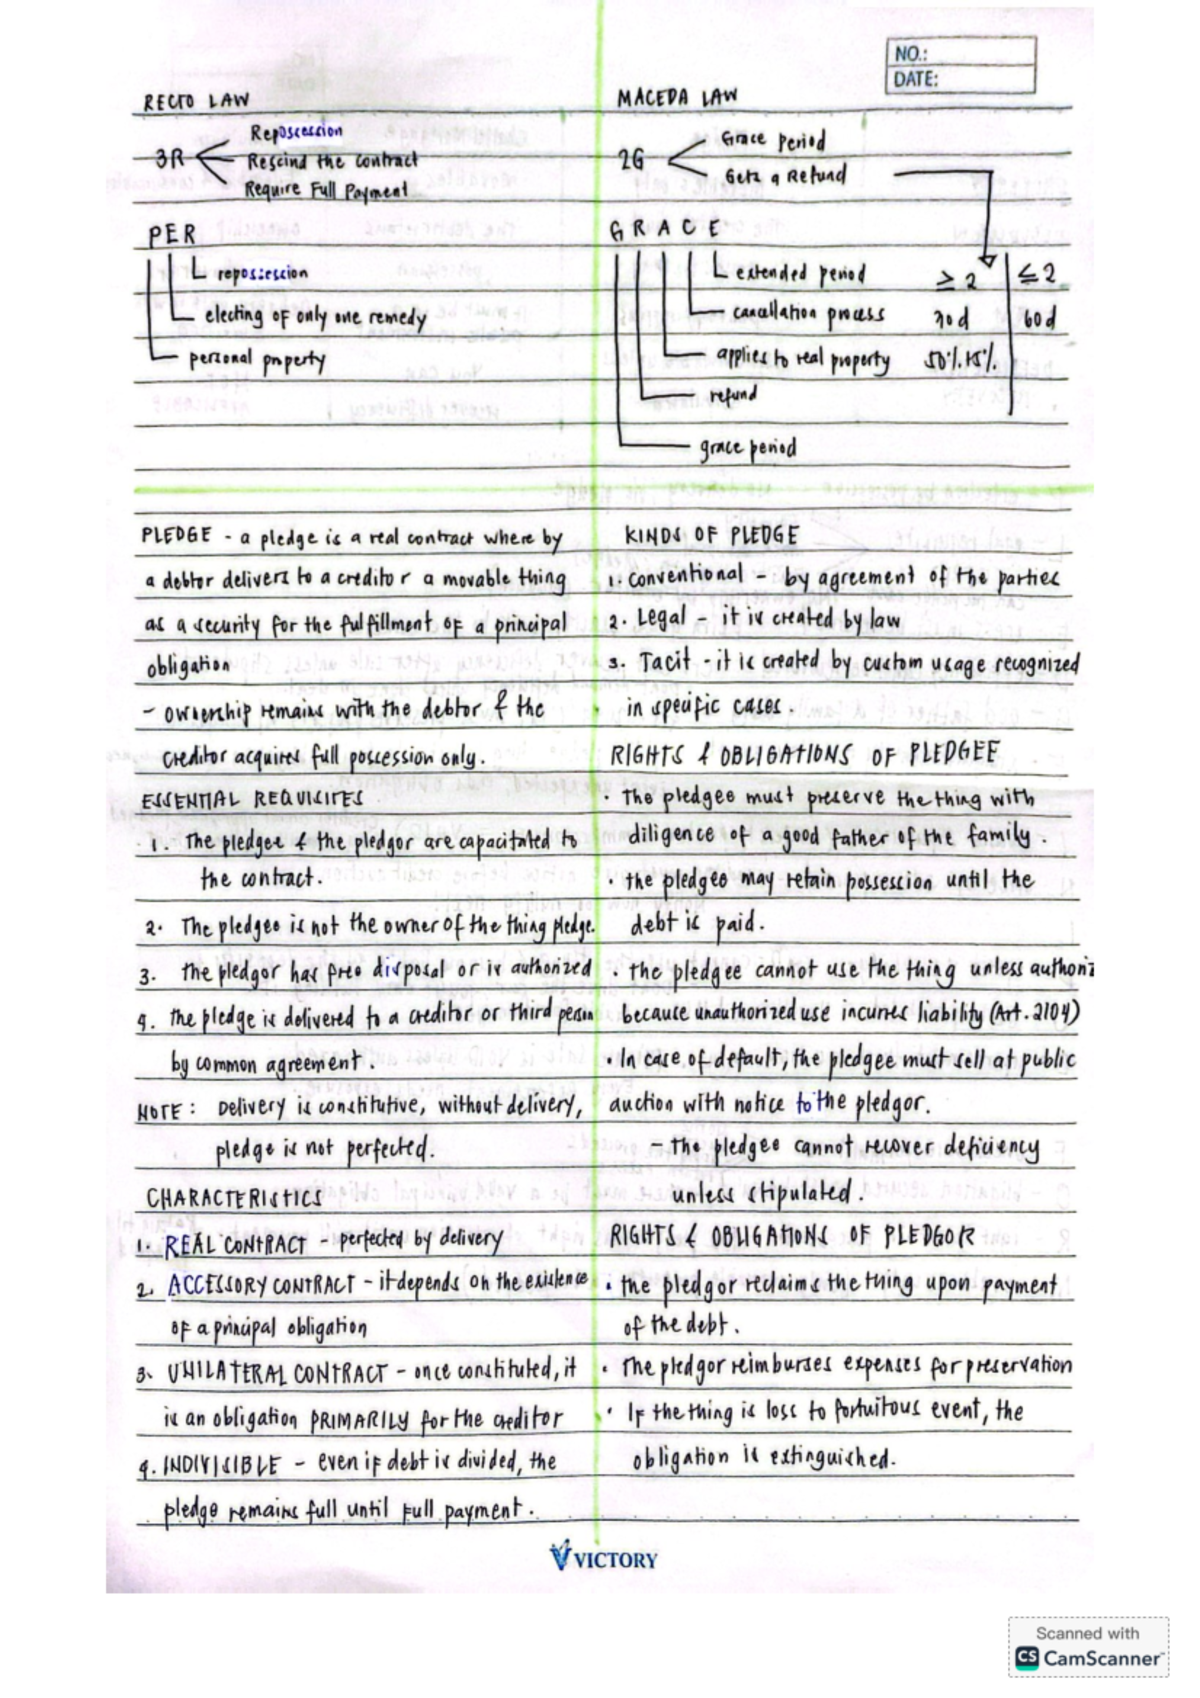 NO.:
DATE:
RECTO LAW
3R
Reposcession
Rescind the contract
Require Full Payment
PER
repossession
electing of only one remedy
personal property
MACEDA LAW
2G
Grace period
Gets a Refund
GRACE
extended period
cancellation process
applies to real property
refund
grace period
≥ 2
≤ 2
60d
PLEDGE - a pledge is a real contract where by
a debtor delivers to a creditor a movable thing
as a security for the fulfillment of a principal
obligation
- ownership remains with the debtor & the
creditor acquires full poscession only.
ESSENTIAL REQUISITES
1. The pledgee & the pledgor are capacitated to
the contract.
2. The pledgee is not the owner of the thing pledge.
3. the pledgor has free disposal or is authorized
4. the pledge is delivered to a creditor or third person
by common agreement.
NOTE: Delivery is constitutive, without delivery,
pledge is not perfected.
CHARACTERISTICS
1. REAL CONTRACT - perfected by delivery
2. ACCESSORY CONTRACT - it depends on the existence
of a principal obligation
3. UNILATERAL CONTRACT - once constituted, it
is an obligation PRIMARILY for the creditor
4. INDIVISIBLE - even if debt is divided, the
pledge remains full until full payment.
KINDS OF PLEDGE
1. Conventional - by agreement of the parties
2. Legal - it is created by law
3. Tacit - it is created by custom usage recognized
in specific cases.
RIGHTS & OBLIGATIONS OF PLEDGEE
• the pledgee must preserve the thing with
diligence of a good father of the family.
• the pledgee may retain possession until the
debt is paid.
• the pledgee cannot use the thing unless authoriz
because unauthorized use incures liability (Art. 2104)
• In case of default, the pledgee must sell at public
auction with notice to the pledgor.
- the pledgee cannot recover deficiency
unless stipulated.
RIGHTS & OBLIGATIONS OF PLEDGOR
• the pledgor reclaims the thing upon payment
of the debt.
• The pledgor reimburses expenses for preservation
• If the thing is loss to fortuitous event, the
obligation is extinguished.
VICTORY
Scanned with
CS CamScanner